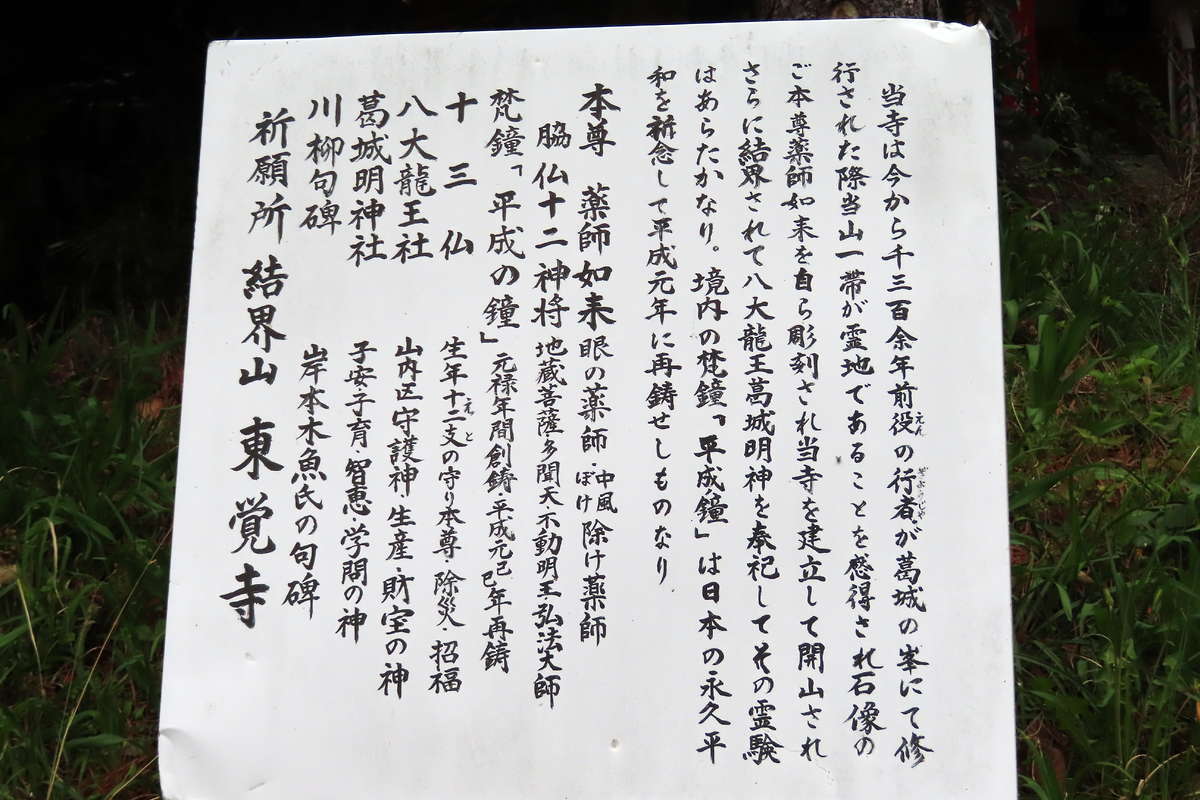 当寺は今から千三百余年前役の行者が葛城の峯にて修
行された際当山一帯が霊地であることを感得され石像の
ご本尊薬師如来を自ら彫刻され当寺を建立して開山され
さらに結界されて八大龍王葛城明神を奉祀してその霊験
はあらたかなり。境内の梵鐘「平成鐘」は日本の永久平
和を祈念して平成元年に再鋳せしものなり
本尊 薬師如来 眼の薬師・中風ぼけ除け薬師
脇仏十二神将 地蔵菩薩多聞天・不動明王・弘法大師
梵鐘「平成の鐘」 元禄年間創鋳・平成元己巳年再鋳
十三仏 生年十二支の守り本尊・除災・招福
八大龍王社 山内区守護神・生産・財宝の神
葛城明神社 子安子育・智恵・学問の神
川柳句碑 岸本木魚氏の句碑
祈願所 結界山 東覚寺